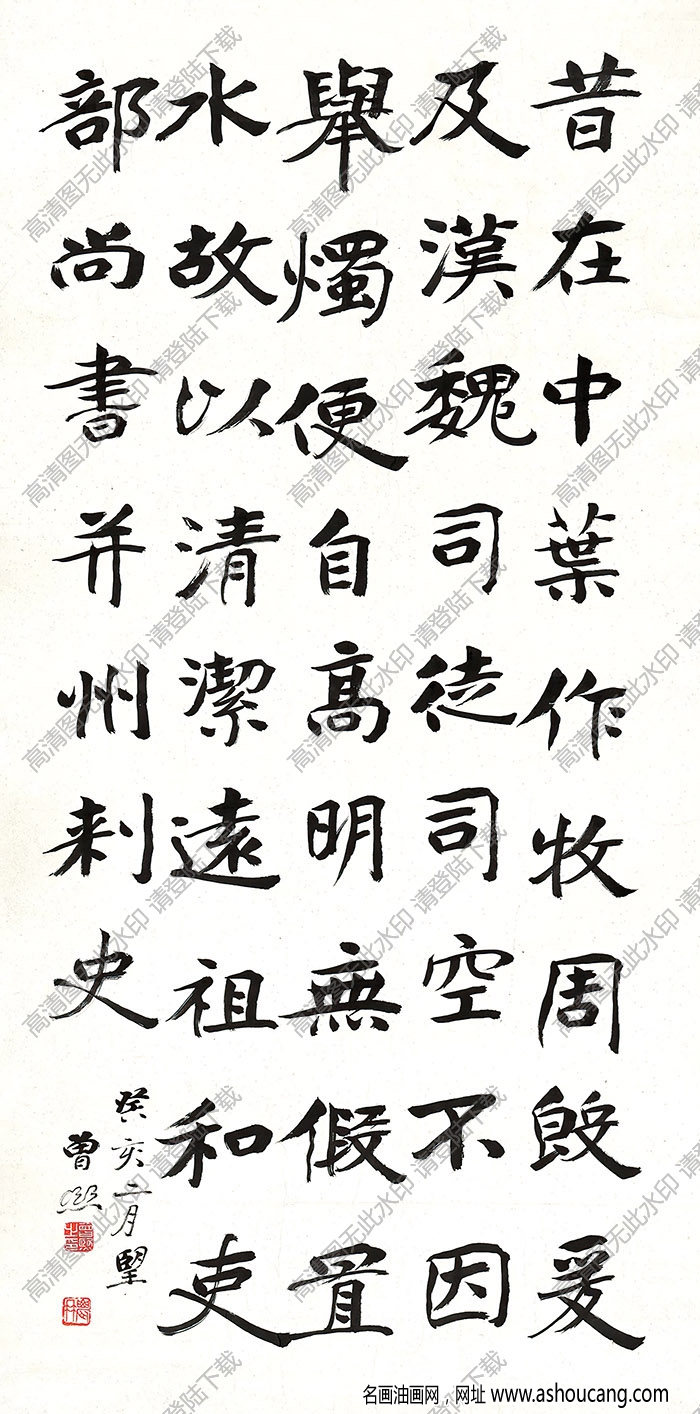 昔在中葉作牧周殷爰
及漢魏司徒司空不因
舉燭便自高明無假置
水故以清潔遠祖和吏
部尚書并州刺史
癸亥二月望
曾熙
高清图无此水印 请登陆下载
名画油画网，网址 www.ashoucang.com